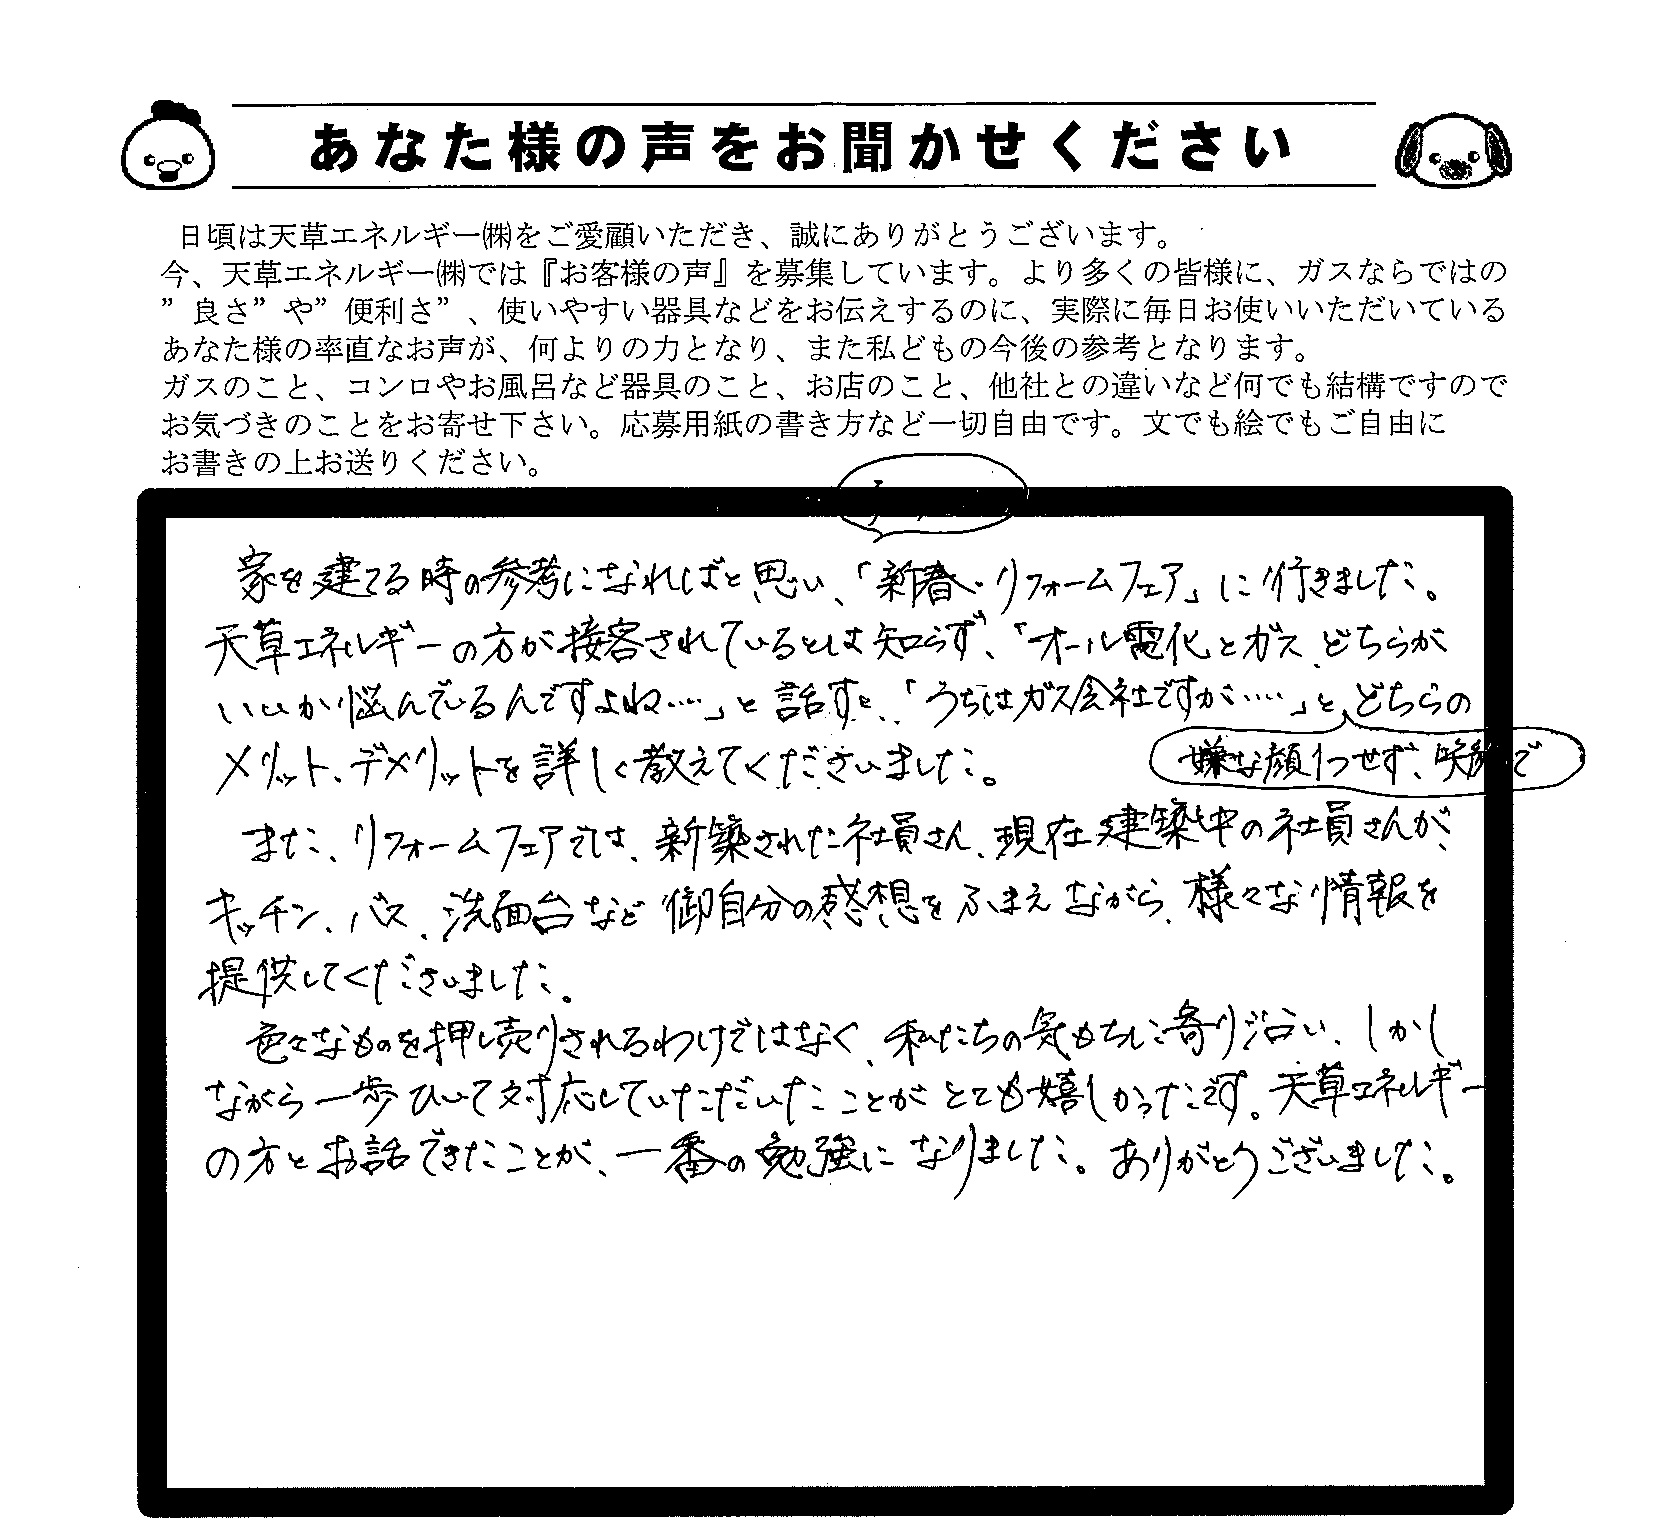 あなた様の声をお聞かせください
日頃は天草エネルギー㈱をご愛顧いただき、誠にありがとうございます。
今、天草エネルギー㈱では『お客様の声』を募集しています。より多くの皆様に、ガスならではの
”良さ”や”便利さ”、使いやすい器具などをお伝えするのに、実際に毎日お使いいただいている
あなた様の率直なお声が、何よりの力となり、また私どもの今後の参考となります。
ガスのこと、コンロやお風呂など器具のこと、お店のこと、他社との違いなど何でも結構ですので
お気づきのことをお寄せ下さい。応募用紙の書き方など一切自由です。文でも絵でもご自由に
お書きの上お送りください。
家を建てる時の参考になればと思い、「新春・リフォームフェア」に行きました。
天草エネルギーの方が接客されているとは知らず、「オール電化とガス、どちらが
いいか悩んでいるんですよね……」と話すと、「うちはガス会社ですが……」と、どちらの
嫌な顔1つせず、笑顔で
メリット、デメリットを詳しく教えてくださいました。
また、リフォームフェアでは、新築された社員さん、現在建築中の社員さんが、
キッチン、バス、洗面台など御自分の感想をふまえながら、様々な情報を
提供してくださいました。
色々なものを押し売りされるわけではなく、私たちの気もちに寄り沿い、しかし
ながら一歩ひいて対応していただいたことがとても嬉しかったです。天草エネルギー
の方とお話できたことが、一番の勉強になりました。ありがとうございました。